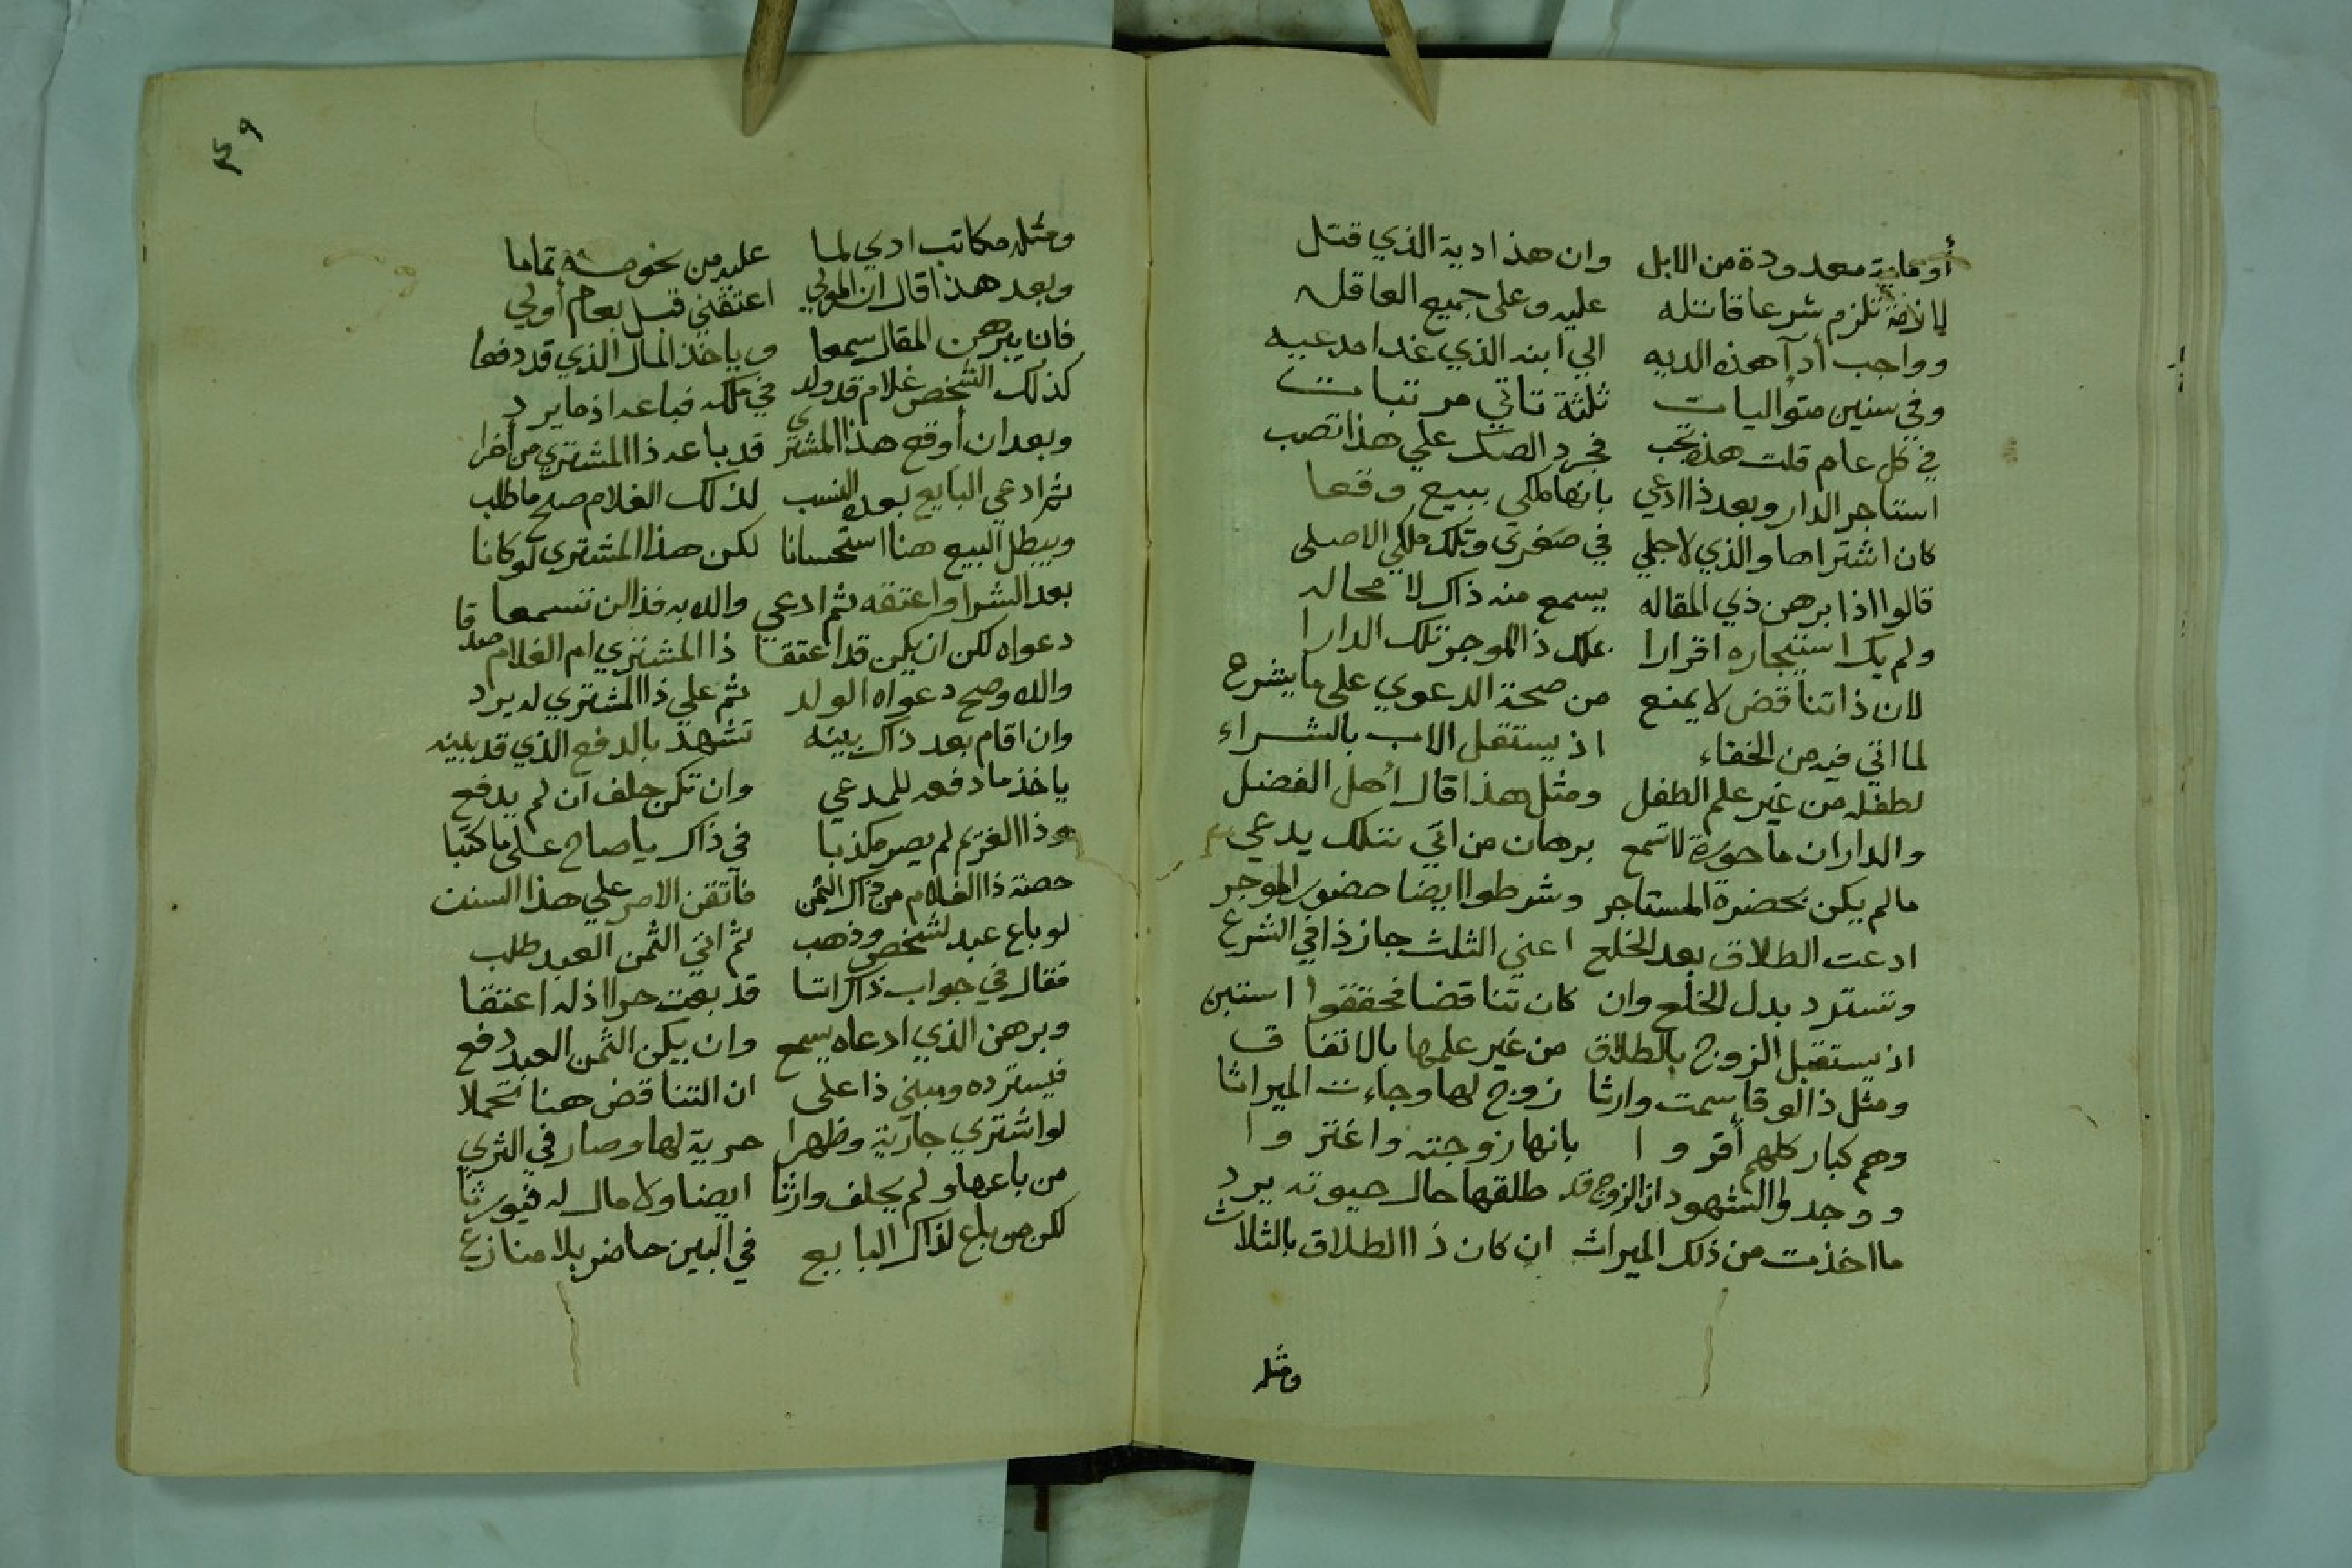 أو ماية معدودة من الابل وان هذا دية الذي قتل
لازمة تلزم شرعا قاتله عليه وعلى جميع العاقله
وواجب أدآ هذه الديه الي ابنه الذي غدا مدعيه
وفي سنين متواليات ثلثة تاتي مرتبات
في كل عام قلت هذه تجب فجرد الصك علي هذا تصب
استاجر الدار وبعد ذا ادعي بانها ملكي ببيع وقعا
كان اشتراها والذي لاجلي في صغري وتلك ملكي الاصلي
قالوا اذا برهن ذي المقاله يسمع منه ذاك لا محاله
ولم يك استيجاره اقرارا بملك ذا الموجر تلك الدارا
لان ذا تناقض لا يمنع من صحة الدعوي على ما يشرع
لما اتي فيه من الخفاء اذ يستقل الاب بالشراء
لطفله من غير علم الطفل ومثل هذا قال أهل الفضل
والدار ان ماجورة لا تسمع برهان من اتي بتلك يدعي
مالم يكن بحضرة المستاجر وشرطوا ايضا حضور الموجر
ادعت الطلاق بعد الخلع اعني الثلث جاز ذا في الشرع
وتسترد بدل الخلع وان كان تناقضا فحققوا استبن
اذ يستقبل الزوج بالطلاق من غير علمها بالاتفاق
ومثل ذا لو قاسمت وارثا زوج لها وجاءت الميراثا
وهم كبار كلهم أقروا بانها زوجته واغتروا
ووجدوا الشهود ان الزوج قد طلقها حال حيوته يرد
ما اخذت من ذلك الميراث ان كان ذا الطلاق بالثلاث
ومثله
٣٩
ومثله مكاتب ادي لما عليه من نجومه تماما
وبعد هذا قال ان المولي اعتقني قبل بعام أولي
فان يبرهن المقال سمعا وياخذ المال الذي قد دفعا
كذلك الشخص غلام قد ولد في ملكه فباعه اذ ما يرد
وبعد ان أوقع هذا المشتري قد باعه ذا المشتري من أخرا
ثم ادعي البايع بعده النسب لذلك الغلام صح ما طلب
ويبطل البيع هنا استحسانا لكن هذا المشتري لو كانا
بعد الشرا واعتقه ثم ادعي والده فذا لن تسمعا
دعواه لكن ان يكن قد اعتقا ذا المشتري ام الغلام صدقا
والده وصح دعواه الولد ثم علي ذا المشتري له يرد
وان اقام بعد ذاك بينه تشهد بالدفع الذي قد بينه
ياخذ ما دفعه للمدعي وان تكن حلف ان لم يدفع
وذا الغريم لم يصر مكذبا في ذاك يا صاح على ما كتبا
حصة ذا الغلام من ذاك الثمن فاتقن الامر علي هذا السنن
لو باع عبد لشخص وذهب ثم اتي الثمن العبد طلب
فقال في جواب ذاك اتا قد بعت حرا اذ له اعتقا
وبرهن الذي ادعاه يسمع وان يكن الثمن العبد دفع
فيسترده ومبني ذا على ان التناقض هنا تحملا
لو اشتري جارية وظهرا حرية لها وصار في الثري
من باعها ولم يخلف وارثا ايضا ولا مال له فيورثا
لكن من باع لذاك البايع في البين حاضر بلا منازع